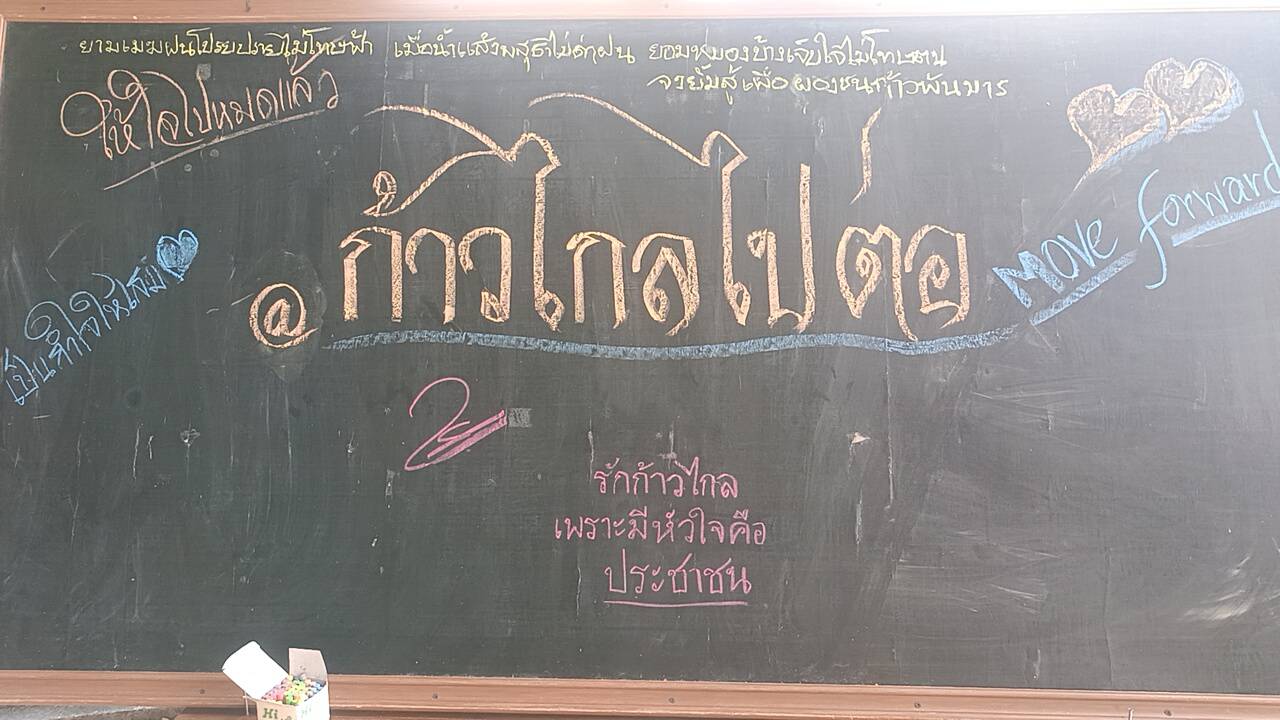 ยามเมฆฝนโปรยปรายไม่โทษฟ้า เมื่อน้ำแล้งพสุธาไม่ด่าฝน ยอมหมองบ้างเจ็บใจไม่โทษตน
จงยิ้มสู้เพื่อผองชนก้าวพ้นผาร
ให้ใจไปหมดแล้ว
@ก้าวไกลไปต่อ
Move forward
เป็นกำลังใจให้เสมอ
รักก้าวไกล
เพราะมีหัวใจคือ
ประชาชน